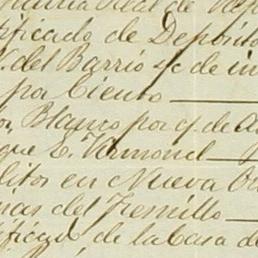 Real de
tificado de Deposito
del Barrio s/c de in
por Ciento
Blanco por q. de A
que L. Armond
litos en Nueva O
nas del Fresnillo
tificado de la Casa de